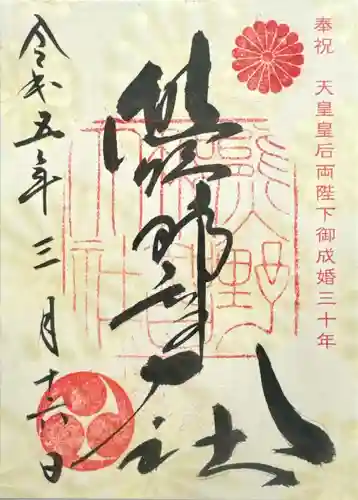 奉祝 天皇皇后両陛下御成婚三十年
熊野
社
令和五年三月十六日
熊野